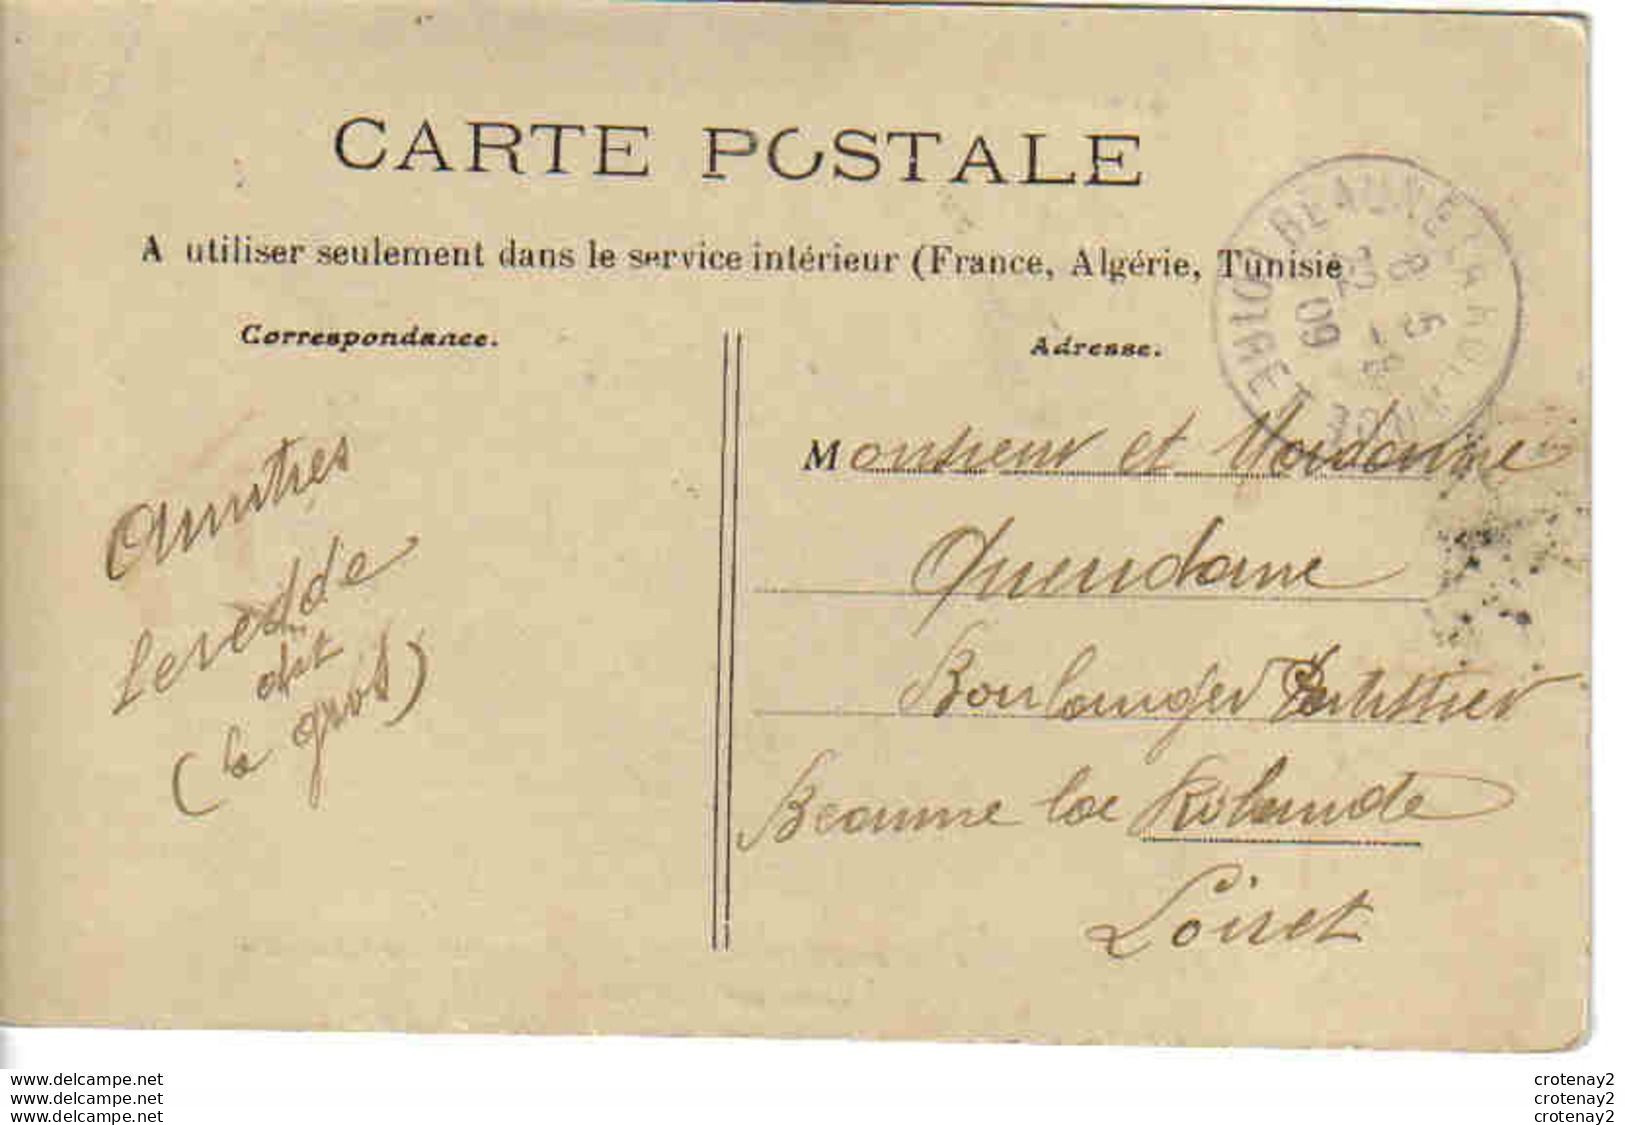 CARTE POSTALE
A utiliser seulement dans le service intérieur (France, Algérie, Tunisie
Correspondance.
Adresse.
BEAUNE LA ROLANDE
LOIRET
8 5
09
Amitiés
Leredde
dit
(le gros)
Monsieur et Madame
Quendane
Boulanger Patissier
Beaune la Rolande
Loiret
www.delcampe.net
www.delcampe.net
www.delcampe.net
crotenay2
crotenay2
crotenay2